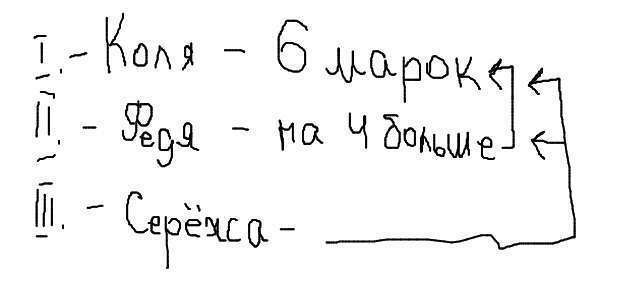 I. - Коля - 6 марок
II. - Федя - на 4 больше
III. - Серёжа -